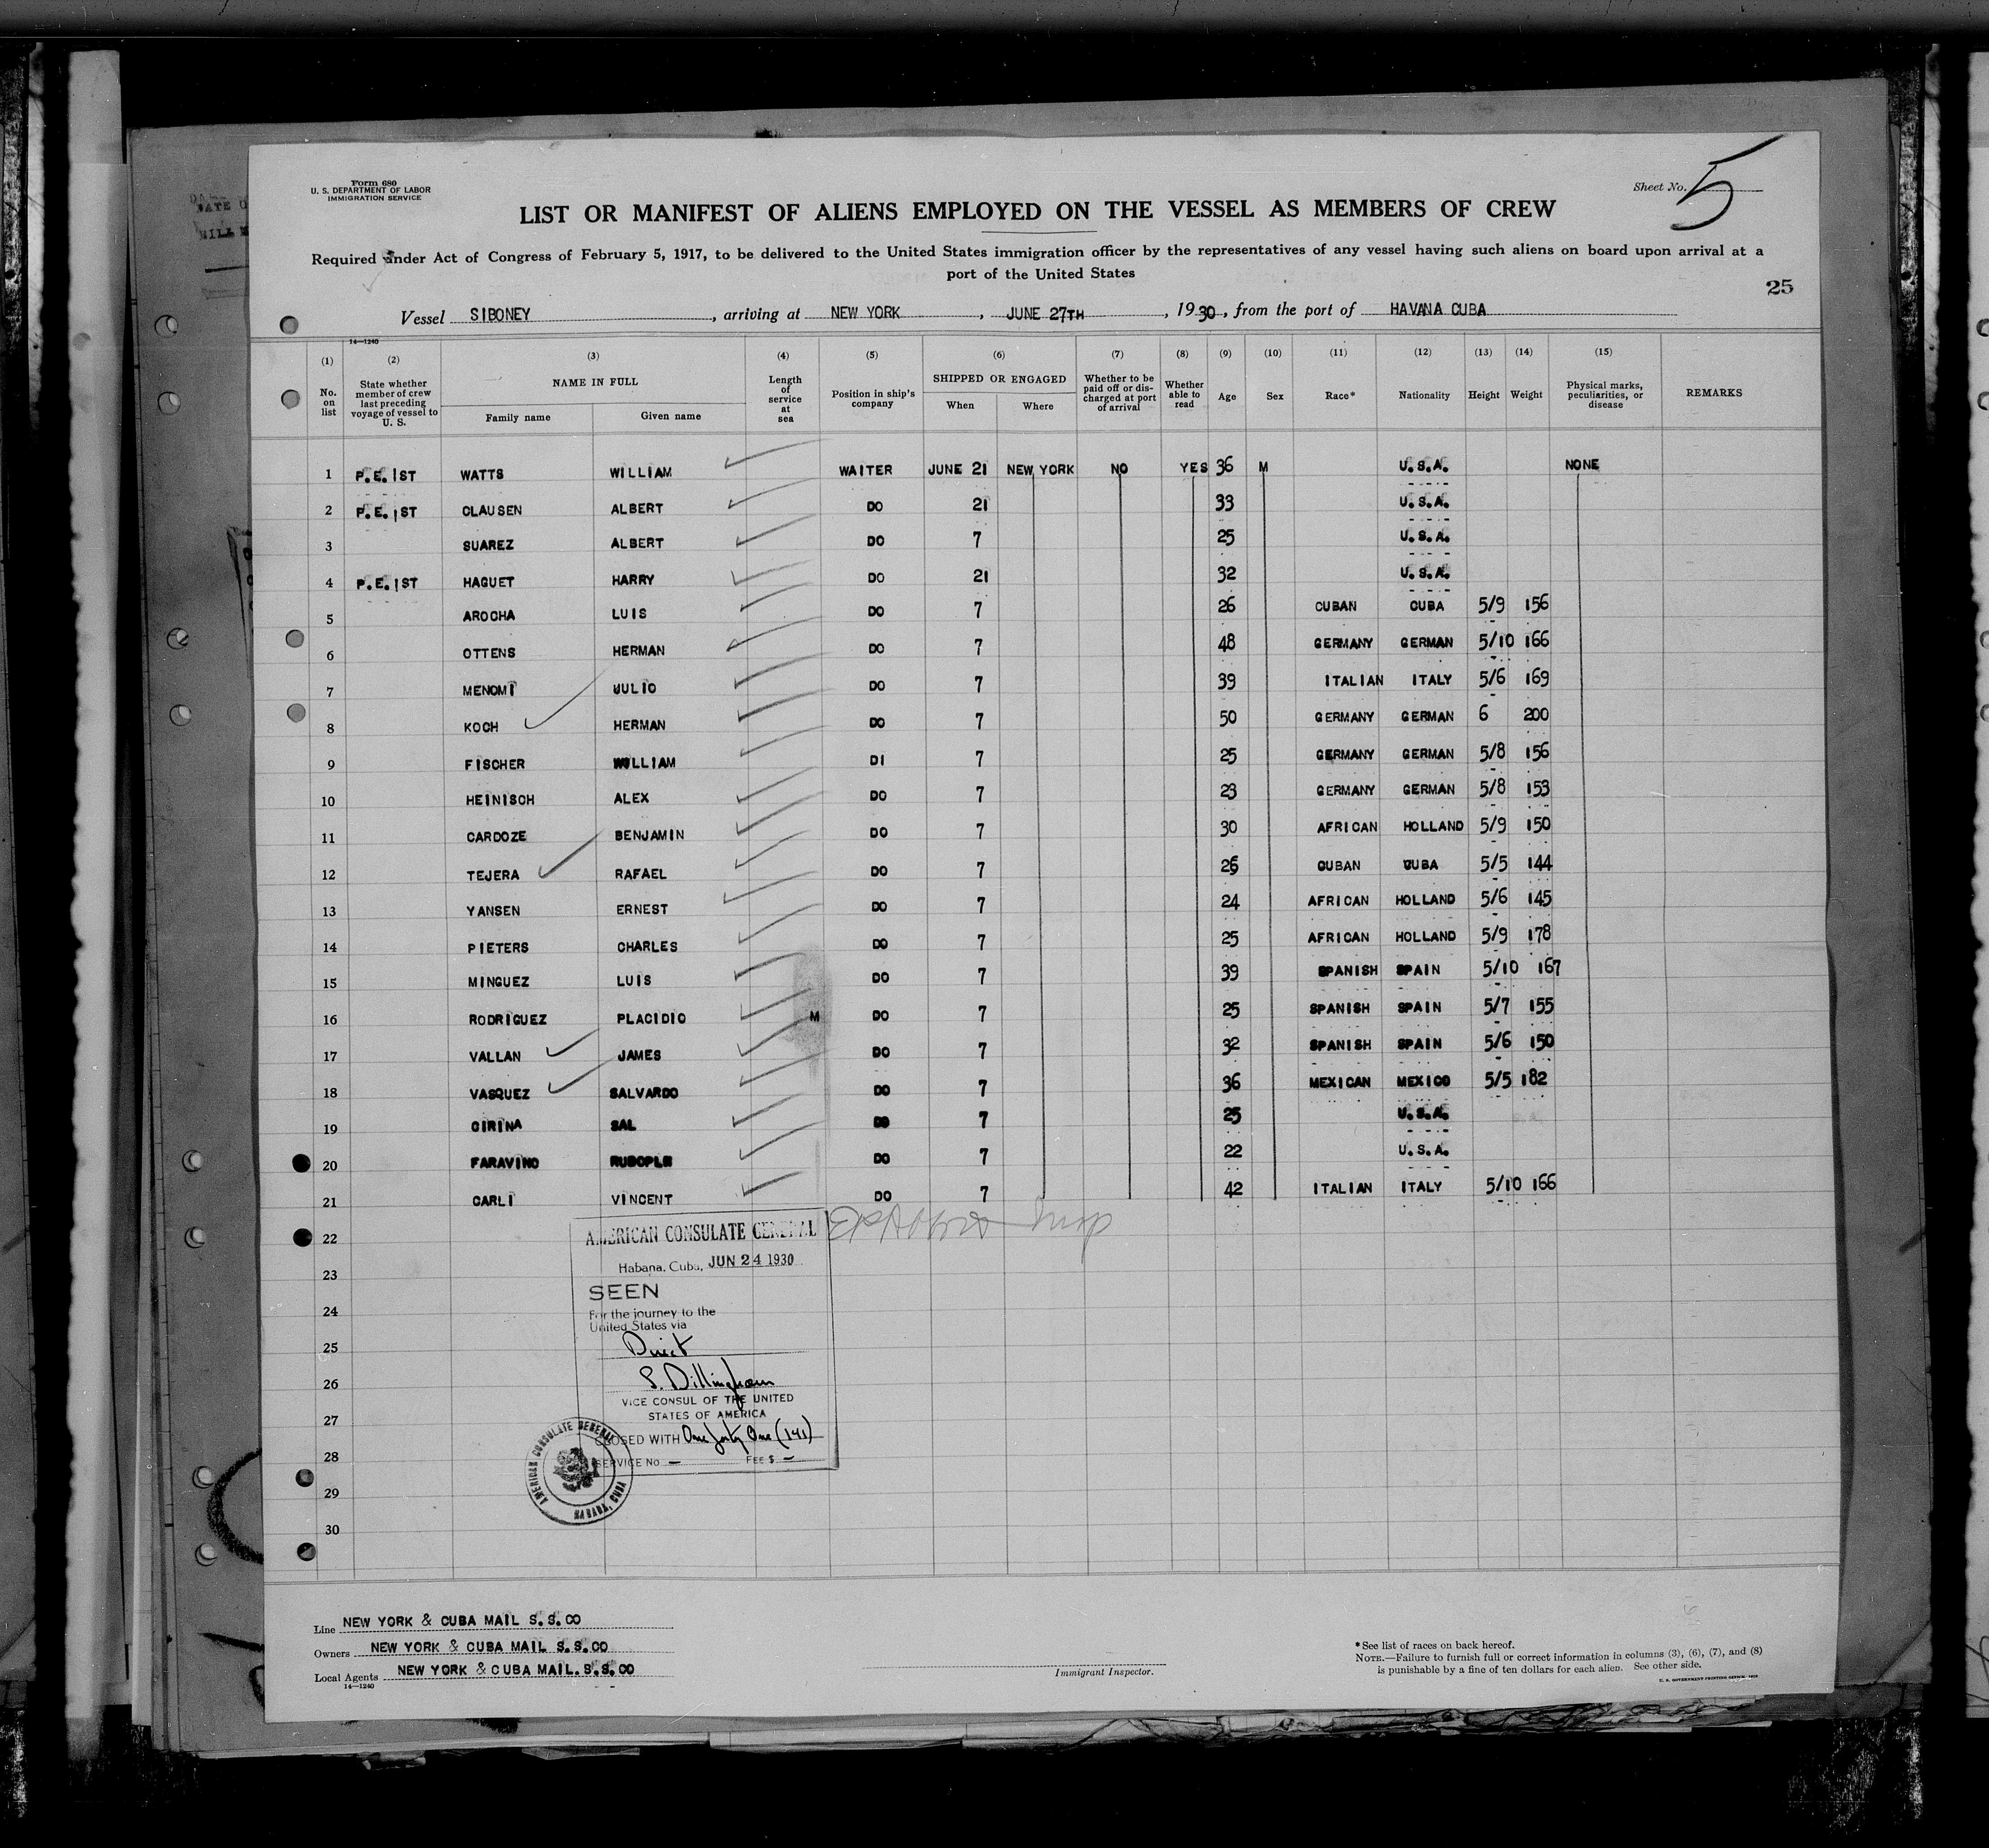 Form 680
U. S. DEPARTMENT OF LABOR
IMMIGRATION SERVICE
Sheet No. 5
LIST OR MANIFEST OF ALIENS EMPLOYED ON THE VESSEL AS MEMBERS OF CREW
Required under Act of Congress of February 5, 1917, to be delivered to the United States immigration officer by the representatives of any vessel having such aliens on board upon arrival at a
port of the United States
25
Vessel SIBONEY, arriving at NEW YORK, JUNE 27TH, 1930, from the port of HAVANA CUBA
14—1240
(1) (2) (3) (4) (5) (6) (7) (8) (9) (10) (11) (12) (13) (14) (15)
No. on list State whether member of crew last preceding voyage of vessel to U. S. NAME IN FULL Family name Given name Length of service at sea Position in ship's company SHIPPED OR ENGAGED When Where Whether to be paid off or discharged at port of arrival Whether able to read Age Sex Race* Nationality Height Weight Physical marks, peculiarities, or disease REMARKS
1 P.E.1ST WATTS WILLIAM WAITER JUNE 21 NEW YORK NO YES 36 M U.S.A. NONE
2 P.E.1ST CLAUSEN ALBERT DO 21 33 U.S.A.
3 SUAREZ ALBERT DO 7 25 U.S.A.
4 P.E.1ST HAGUET HARRY DO 21 32 U.S.A.
5 AROCHA LUIS DO 7 26 CUBAN CUBA 5/9 156
6 OTTENS HERMAN DO 7 48 GERMANY GERMAN 5/10 166
7 MENOMI JULIO DO 7 39 ITALIAN ITALY 5/6 169
8 KOCH HERMAN DO 7 50 GERMANY GERMAN 6 200
9 FISCHER WILLIAM DI 7 25 GERMANY GERMAN 5/8 156
10 HEINISCH ALEX DO 7 23 GERMANY GERMAN 5/8 153
11 CARDOZE BENJAMIN DO 7 30 AFRICAN HOLLAND 5/9 150
12 TEJERA RAFAEL DO 7 26 CUBAN CUBA 5/5 144
13 YANSEN ERNEST DO 7 24 AFRICAN HOLLAND 5/6 145
14 PIETERS CHARLES DO 7 25 AFRICAN HOLLAND 5/9 178
15 MINGUEZ LUIS DO 7 39 SPANISH SPAIN 5/10 167
16 RODRIGUEZ PLACIDIO M DO 7 25 SPANISH SPAIN 5/7 155
17 VALLAN JAMES DO 7 32 SPANISH SPAIN 5/6 150
18 VASQUEZ SALVARDO DO 7 36 MEXICAN MEXICO 5/5 182
19 CIRINA SAL DO 7 25 U.S.A.
20 FARAVINO DO 7 22 U.S.A.
21 CARLI VINCENT DO 7 42 ITALIAN ITALY 5/10 166
22
23
24
25
26
27
28
29
30
AMERICAN CONSULATE GENERAL
Habana, Cuba, JUN 24 1930
SEEN
For the journey to the
United States via
Direct
S. Dillingham
VICE CONSUL OF THE UNITED
STATES OF AMERICA
CLOSED WITH One forty One (141)
SERVICE No — FEE $ —
AMERICAN CONSULATE GENERAL HABANA, CUBA
Line NEW YORK & CUBA MAIL S.S.CO
Owners NEW YORK & CUBA MAIL S.S.CO
Local Agents NEW YORK & CUBA MAIL.S.S.CO
14—1240
Immigrant Inspector.
*See list of races on back hereof.
NOTE.—Failure to furnish full or correct information in columns (3), (6), (7), and (8)
is punishable by a fine of ten dollars for each alien. See other side.